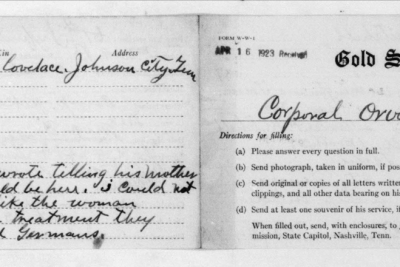 Kin Address
Lovelace. Johnson City Tenn
wrote telling his mother
ld be herr. i could not
like the woman
treatment they
d Germans.
FORM W-W-1
APR 16 1923 Received
Gold S
Corporal
Directions for filling:
(a) Please answer every question in full.
(b) Send photograph, taken in uniform, if pos
(c) Send original or copies of all letters written
clippings, and all other data bearing on his
(d) Send at least one souvenir of his service, if
When filled out, send, with enclosures, to
mission, State Capitol, Nashville, Tenn.